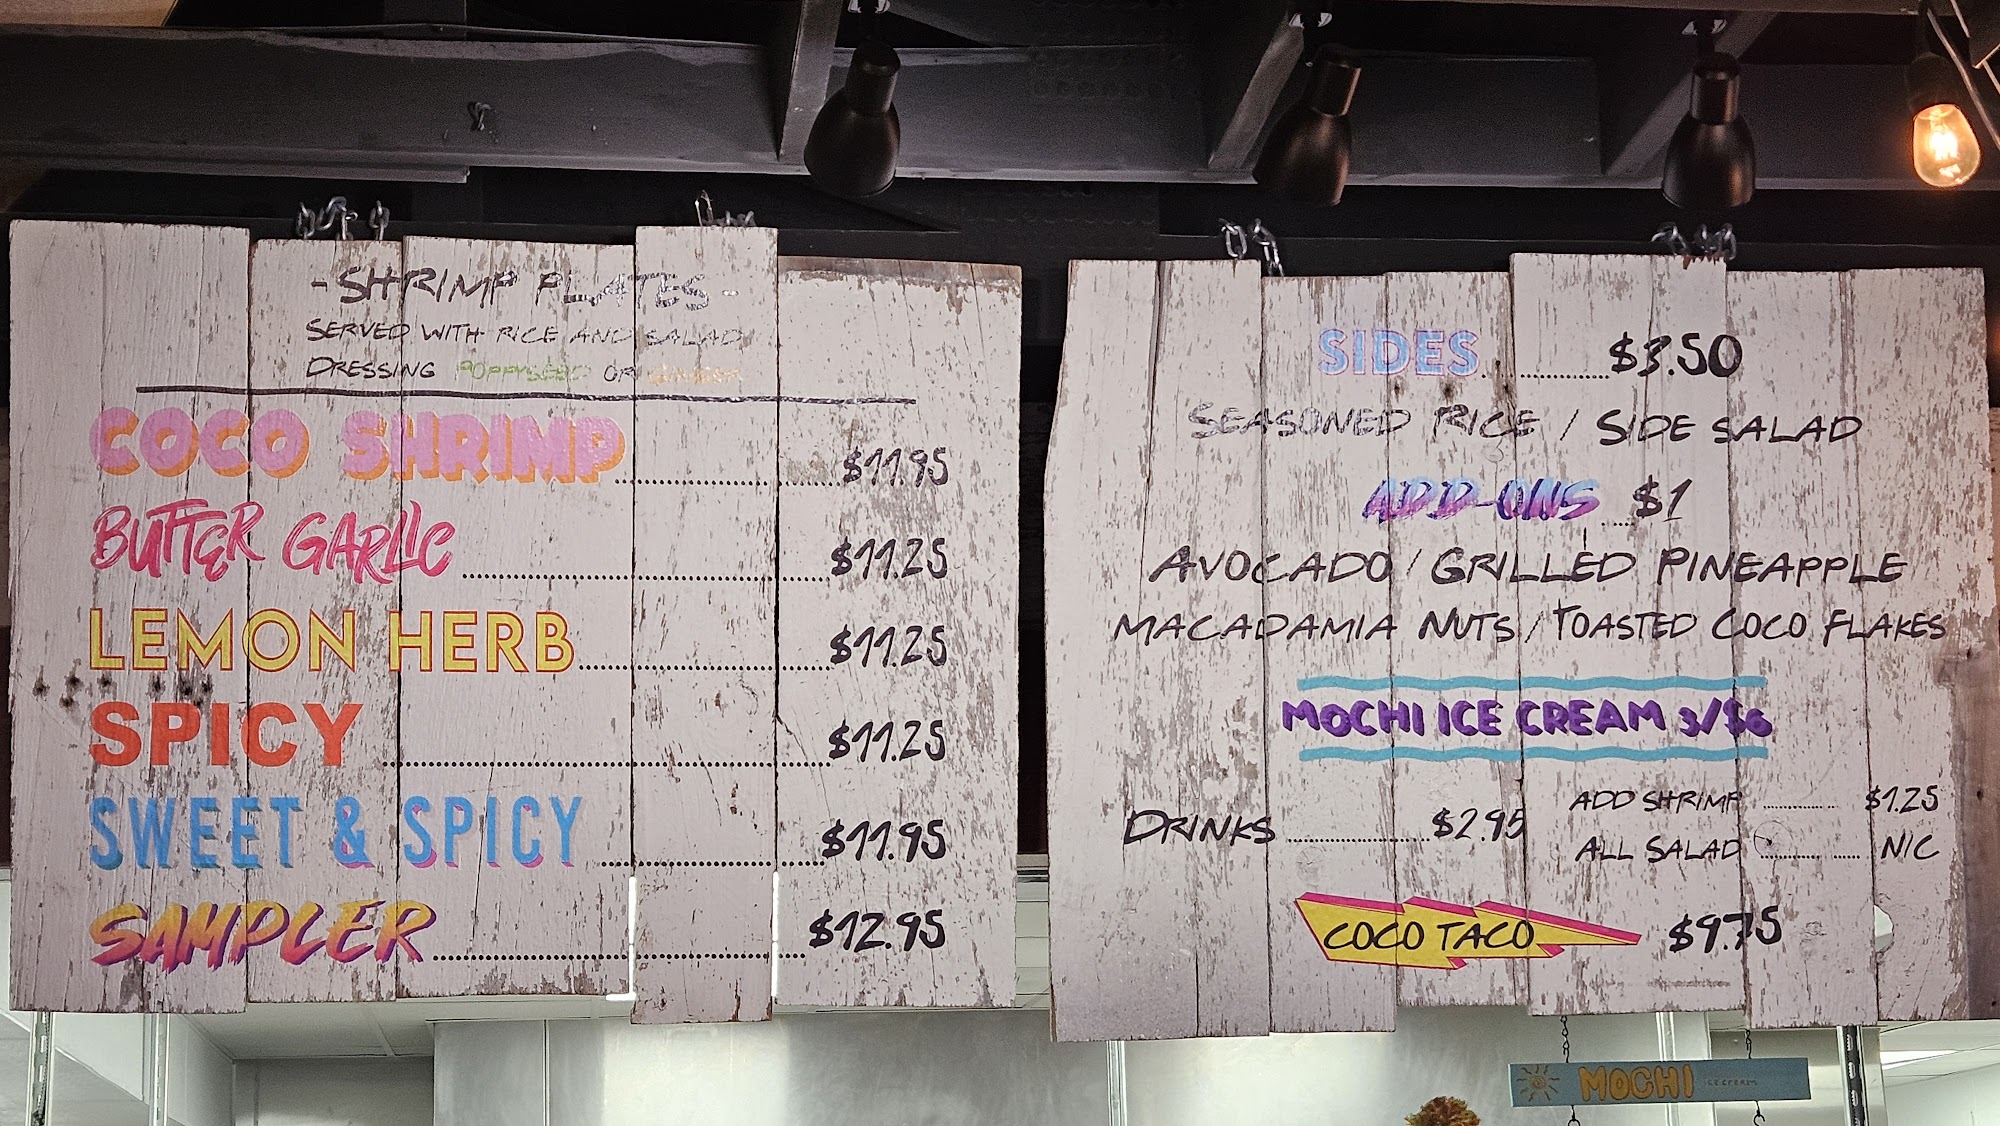 -SHRIMP PLATES-
SERVED WITH RICE AND SALAD
DRESSING POPPYSEED OR GINGER
COCO SHRIMP $11.95
BUTTER GARLIC $11.25
LEMON HERB $11.25
SPICY $11.25
SWEET & SPICY $11.95
SAMPLER $12.95
SIDES $3.50
SEASONED RICE / SIDE SALAD
ADD-ONS $1
AVOCADO / GRILLED PINEAPPLE
MACADAMIA NUTS / TOASTED COCO FLAKES
MOCHI ICE CREAM 3/$6
DRINKS $2.95
ADD SHRIMP $1.25
ALL SALAD N/C
COCO TACO $9.75
MOCHI ICE CREAM